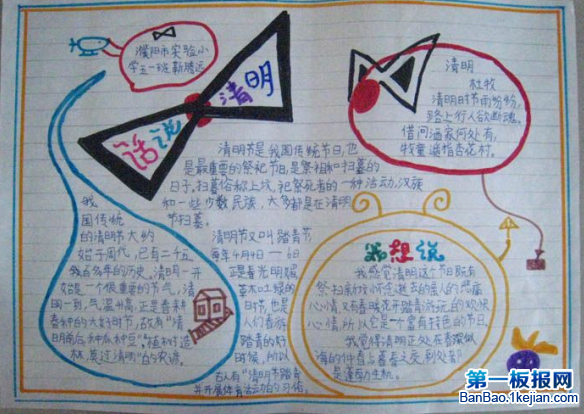 濮阳市实验小
学五一班 靳腾远
话说清明
清明节是我国传统节日，也
是最重要的祭祀节日，是祭祖和扫墓的
日子，扫墓俗称上坟，祀祭死者的一种活动，汉族
和一些少数民族，大多都是在清明
节扫墓。
我
国传统
的清明节大约
始于周代，已有二千五
百多年的历史。清明一开
始是一个很重要的节气，清
明一到，气温升高，正是春耕
春种的大好时节，故有"清
明前后，种瓜种豆""植树造
林，莫过清明"的农谚。
清明节又叫踏青节
每年4月4日—6日
正是春光明媚
草木吐绿的
时节，也是
人们春游
踏青的好
时候，所以
古人有"清明节踏青
并开展体育活动的习俗
清明
杜牧
清明时节雨纷纷，
路上行人欲断魂。
借问酒家何处有，
牧童遥指杏花村。
我想说
我感觉清明这个节日既有
祭扫新坟怀念逝去的亲人的悲痛
心情又有春暖花开踏青游玩的欢快
心情所以它是一个富有特色的节日。
我觉得清明正处在春暖
是蓬勃生机。
第一板报网
BanBao.1kejian.com